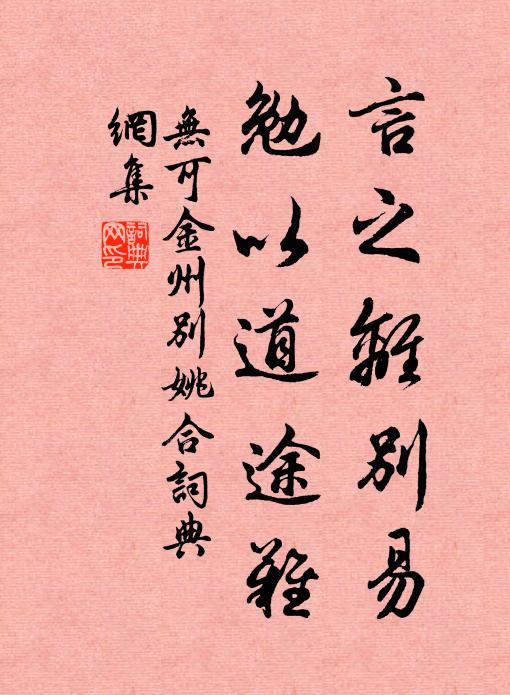 言之離別易
勉以道途難
無可金州別姚合詞典
網集
詞典
网印